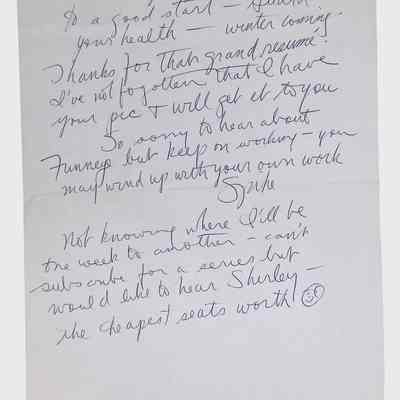 To a good start —
your health — winter coming.
Thanks for that grand resumé!
I've not forgotten that I have
your pic & will get it to you
So sorry to hear about
Funneys but keep on working — you
may wind up with your own work
Spike
Not knowing where I'll be
the week to another — can't
subscribe for a series but
would like to hear Shirley —
the cheapest seats worth!